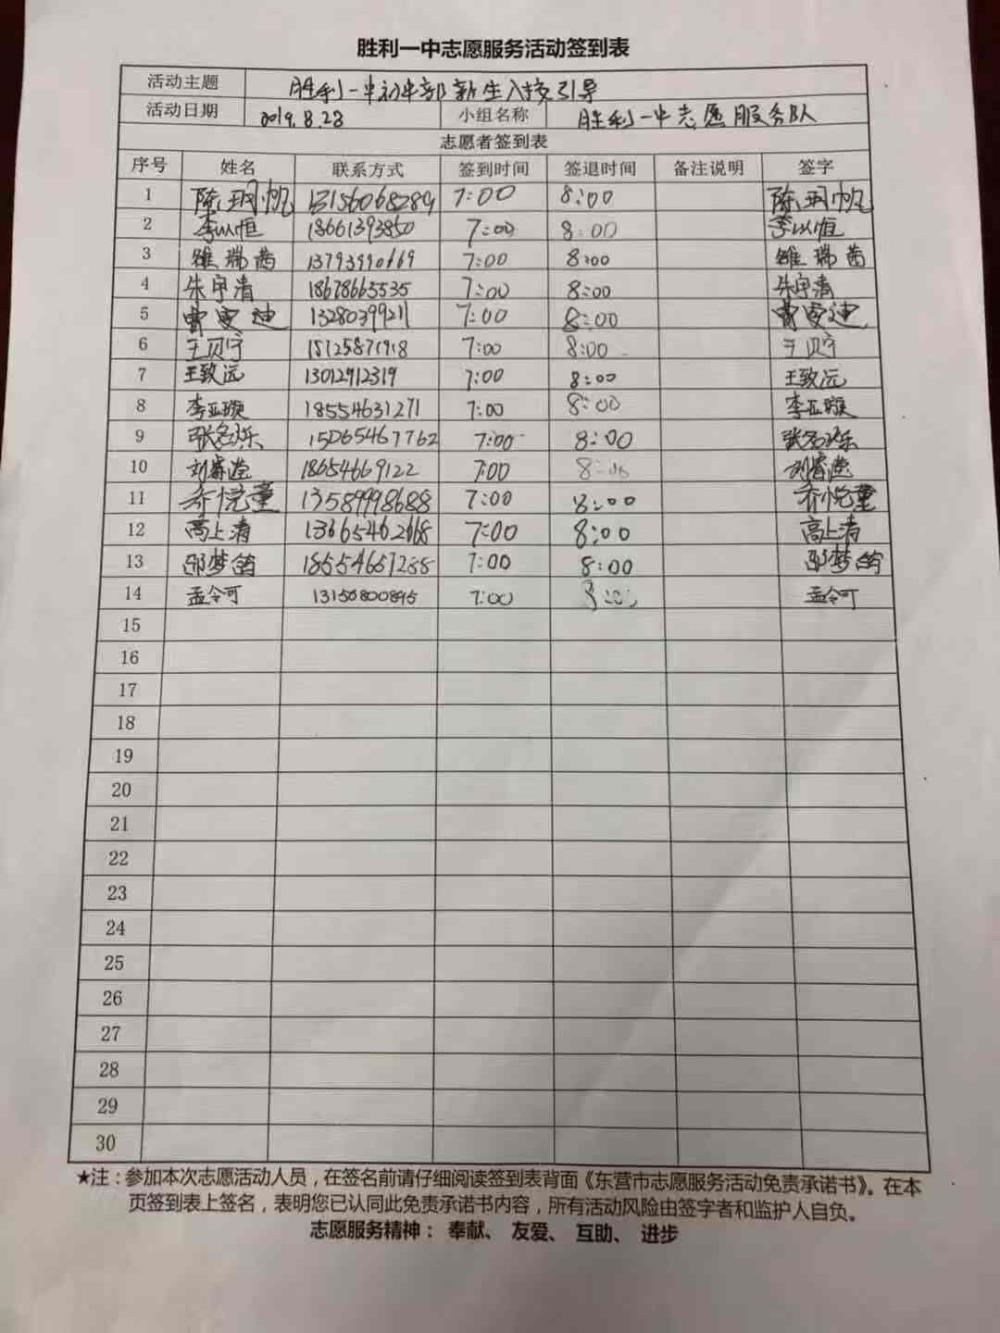 胜利一中志愿服务活动签到表
活动主题 胜利一中初中部新生入校引导
活动日期 2019.8.28 小组名称 胜利一中志愿服务队
志愿者签到表
序号 姓名 联系方式 签到时间 签退时间 备注说明 签字
1 陈玥帆 13156068289 7:00 8:00 陈玥帆
2 李以恒 18661393850 7:00 8:00 李以恒
3 瑞茜 7:00 8:00 瑞茜
4 朱宇清 18678665535 7:00 8:00 朱宇清
5 曹安迪 13280399211 7:00 8:00 曹安迪
6 王贝宁 7:00 8:00 王贝宁
7 王致远 13012912319 7:00 8:00 王致远
8 李亚璇 18554631271 7:00 8:00 李亚璇
9 张名烁 15065467762 7:00 8:00 张名烁
10 刘睿滢 18654669122 7:00 8:00 刘睿滢
11 乔悦童 13589998688 7:00 8:00 乔悦童
12 高上清 7:00 8:00 高上清
13 邵梦鸽 18554651288 7:00 8:00 邵梦鸽
14 孟令可 13156800895 7:00 8:00 孟令可
15
16
17
18
19
20
21
22
23
24
25
26
27
28
29
30
★注：参加本次志愿活动人员，在签名前请仔细阅读签到表背面《东营市志愿服务活动免责承诺书》。在本
页签到表上签名，表明您已认同此免责承诺书内容，所有活动风险由签字者和监护人自负。
志愿服务精神： 奉献、 友爱、 互助、 进步